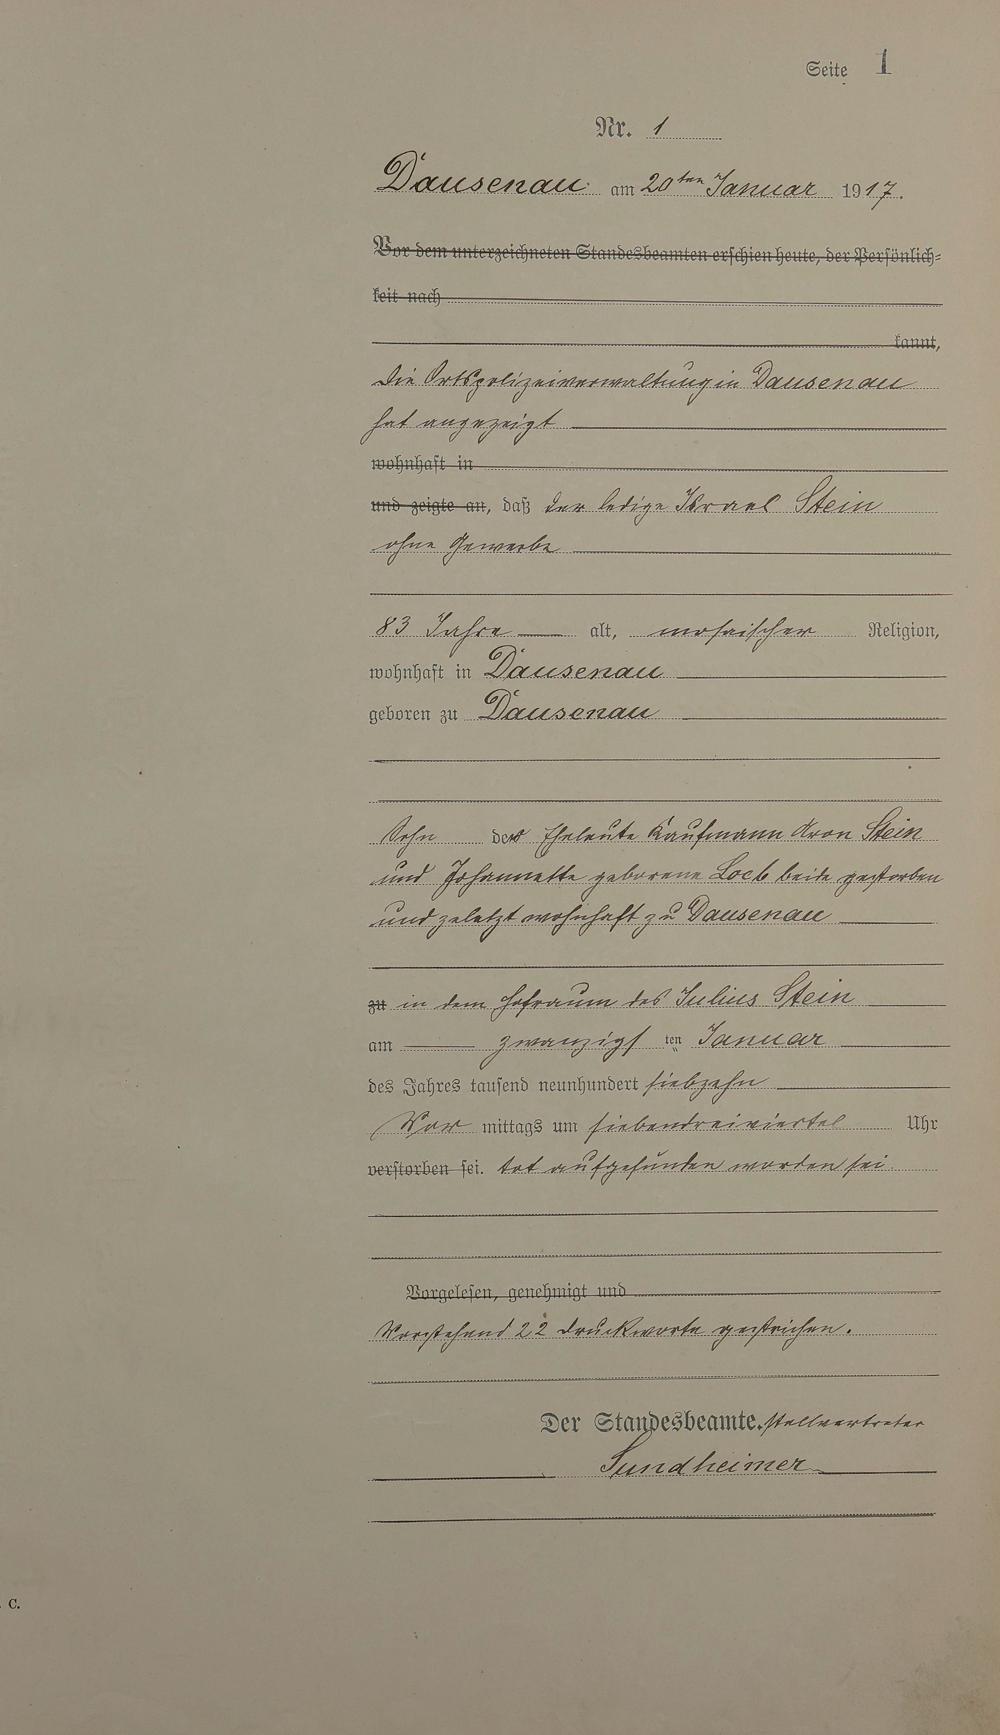 Seite 1
Nr. 1
Dausenau am 20ten Januar 1917.
Vor dem unterzeichneten Standesbeamten erschien heute, der Persönlich=
keit nach
kannt,
die Ortspolizeiverwaltung in Dausenau
hat angezeigt
wohnhaft in
und zeigte an, daß der ledige Israel Stein
ohne Gewerbe
83 Jahre alt, mosaischer Religion,
wohnhaft in Dausenau
geboren zu Dausenau
Sohn der Eheleute Kaufmann Aron Stein
und Johannette geborene Loeb beide gestorben
und zuletzt wohnhaft zu Dausenau
zu in dem Hofraum des Julius Stein
am zwanzigsten Januar
des Jahres tausend neunhundert siebzehn
Vor mittags um siebendreiviertel Uhr
verstorben sei. tot aufgefunden worden sei.
Vorgelesen, genehmigt und
Vorstehend 22 Druckworte gestrichen.
Der Standesbeamte. Stellvertreter
Sundheimer
C.